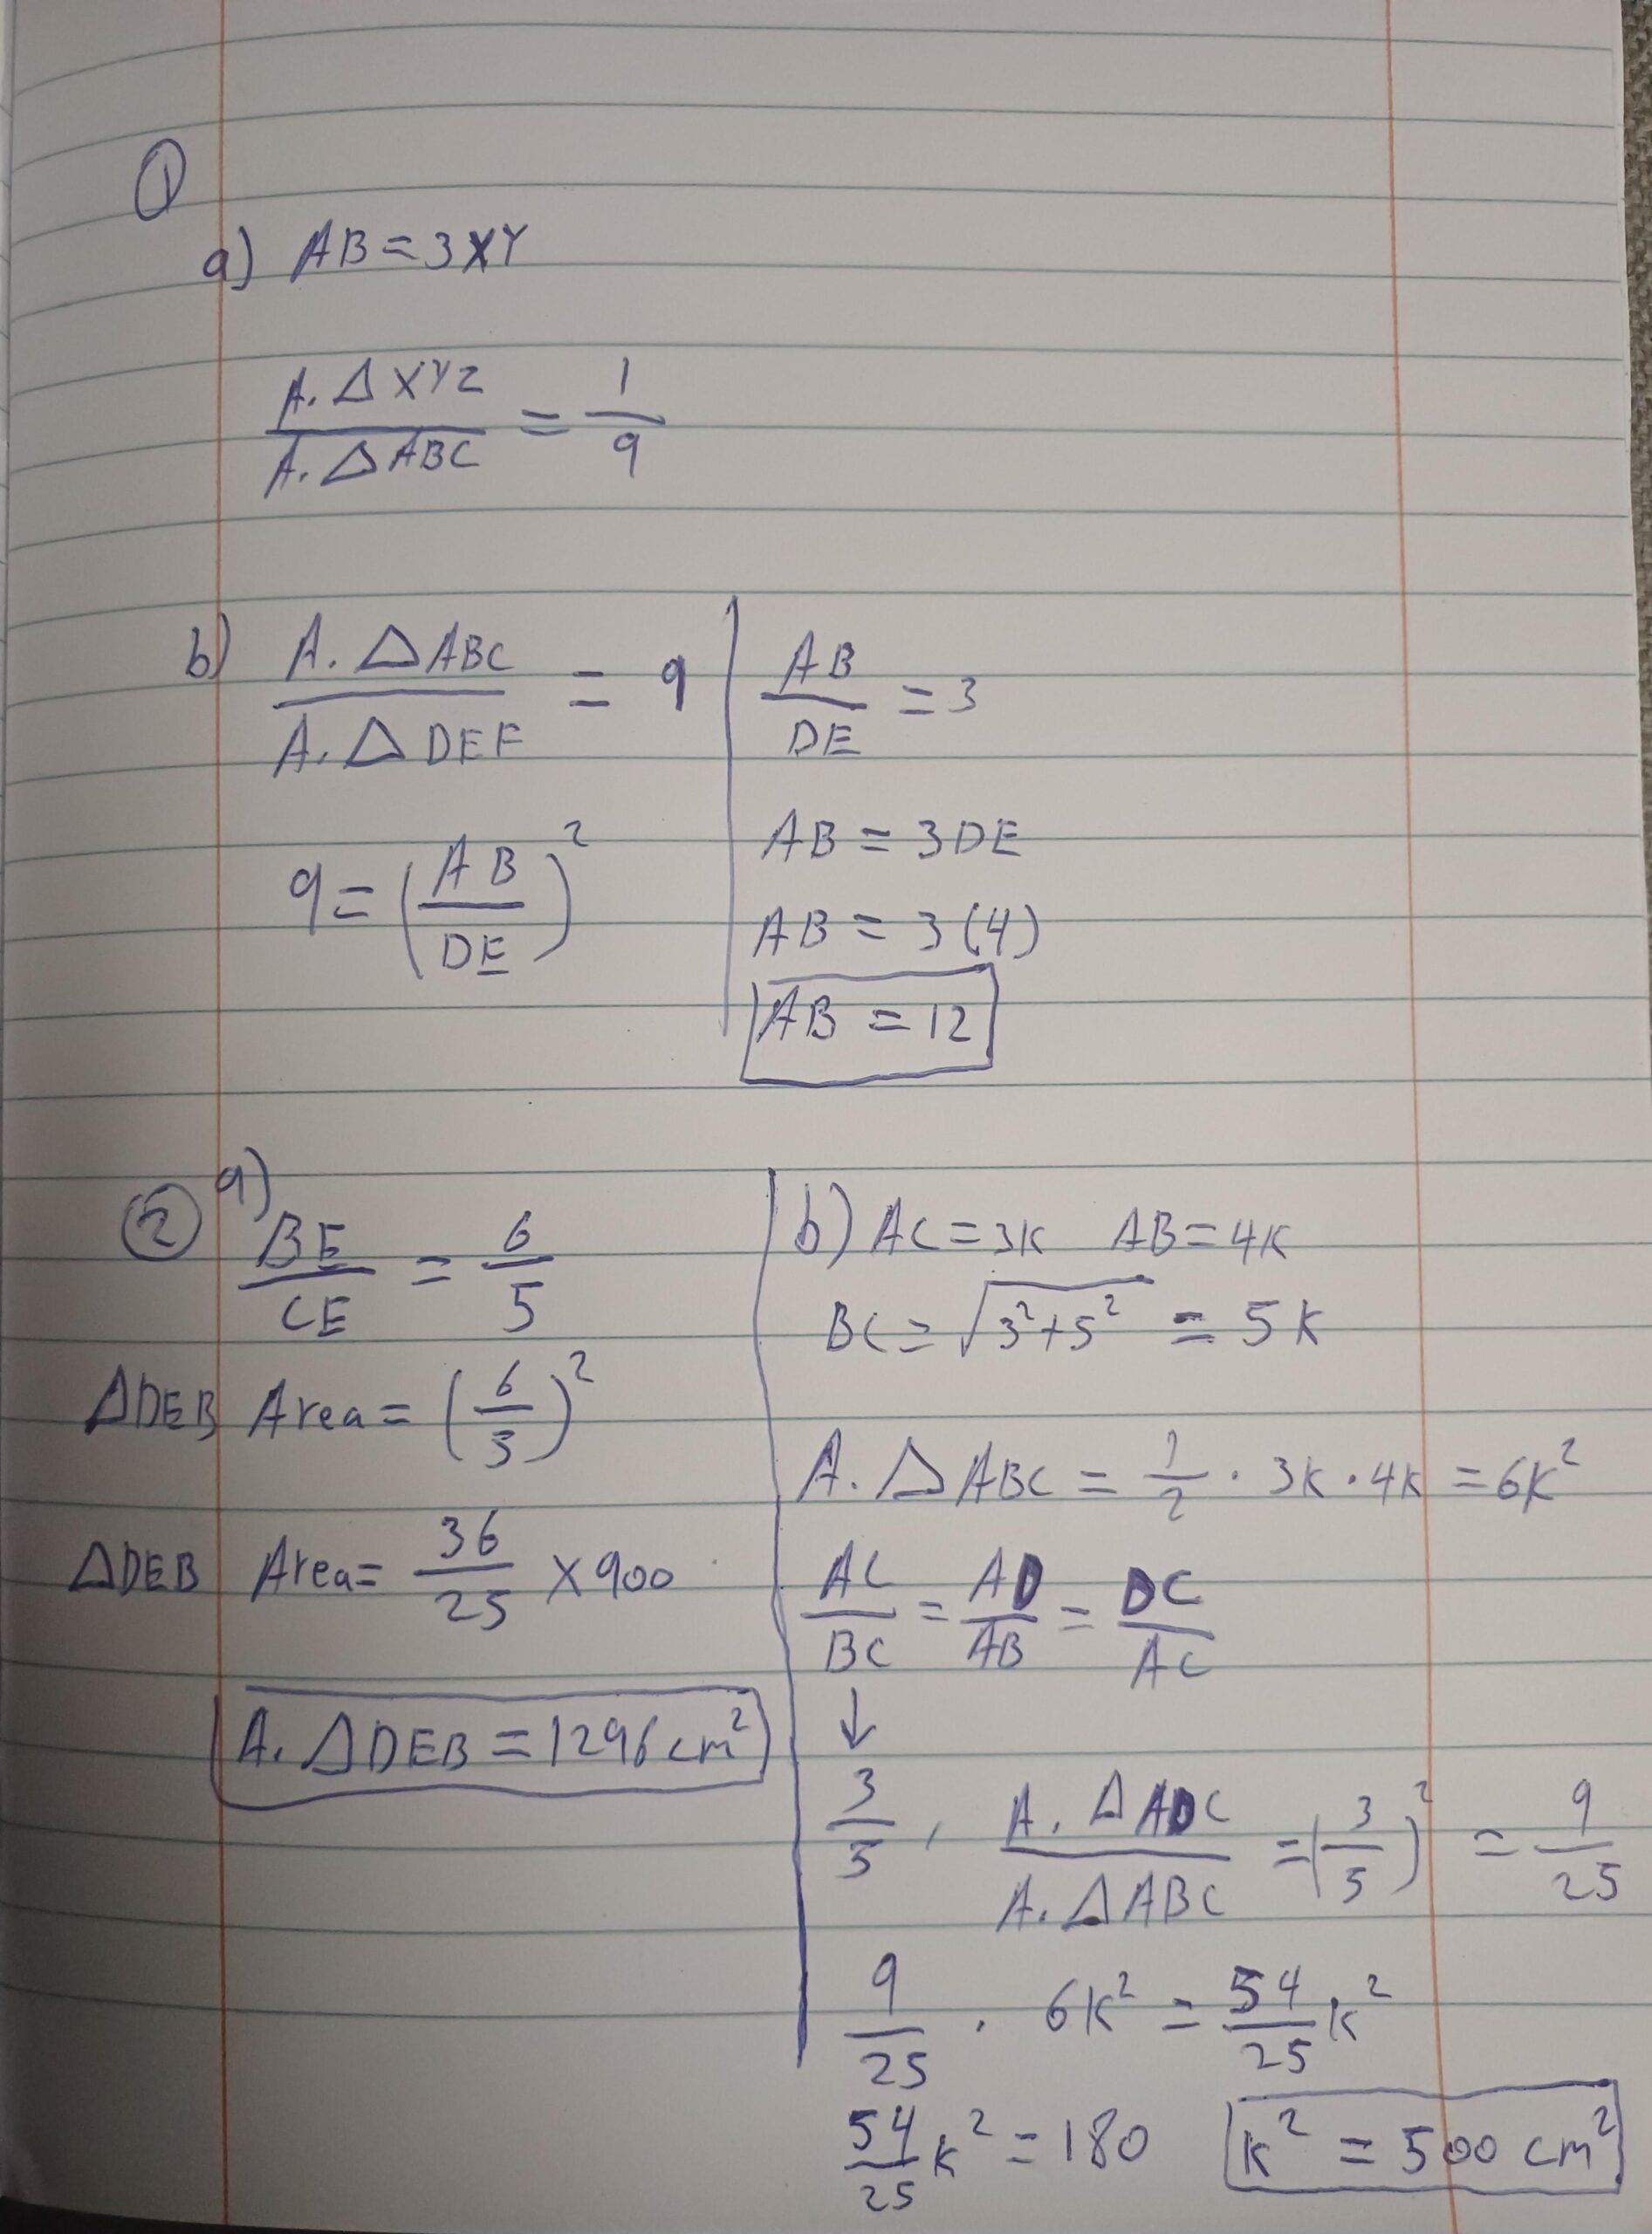 ①
a) AB = 3XY
A. △XYZ / A. △ABC = 1/9
b) A. △ABC / A. △DEF = 9
9 = (AB/DE)²
AB/DE = 3
AB = 3DE
AB = 3(4)
AB = 12
② a)
BE/CE = 6/5
△DEB Area = (6/5)²
△DEB Area = 36/25 × 900
A. △DEB = 1296 cm²
b) AC = 3K AB = 4K
BC = √3²+5² = 5K
A. △ABC = 1/2 · 3K · 4K = 6K²
AC/BC = AD/AB = DC/AC
↓
3/5 , A. △ADC / A. △ABC = (3/5)² = 9/25
9/25 · 6K² = 54/25 K²
54/25 K² = 180 K² = 500 cm²